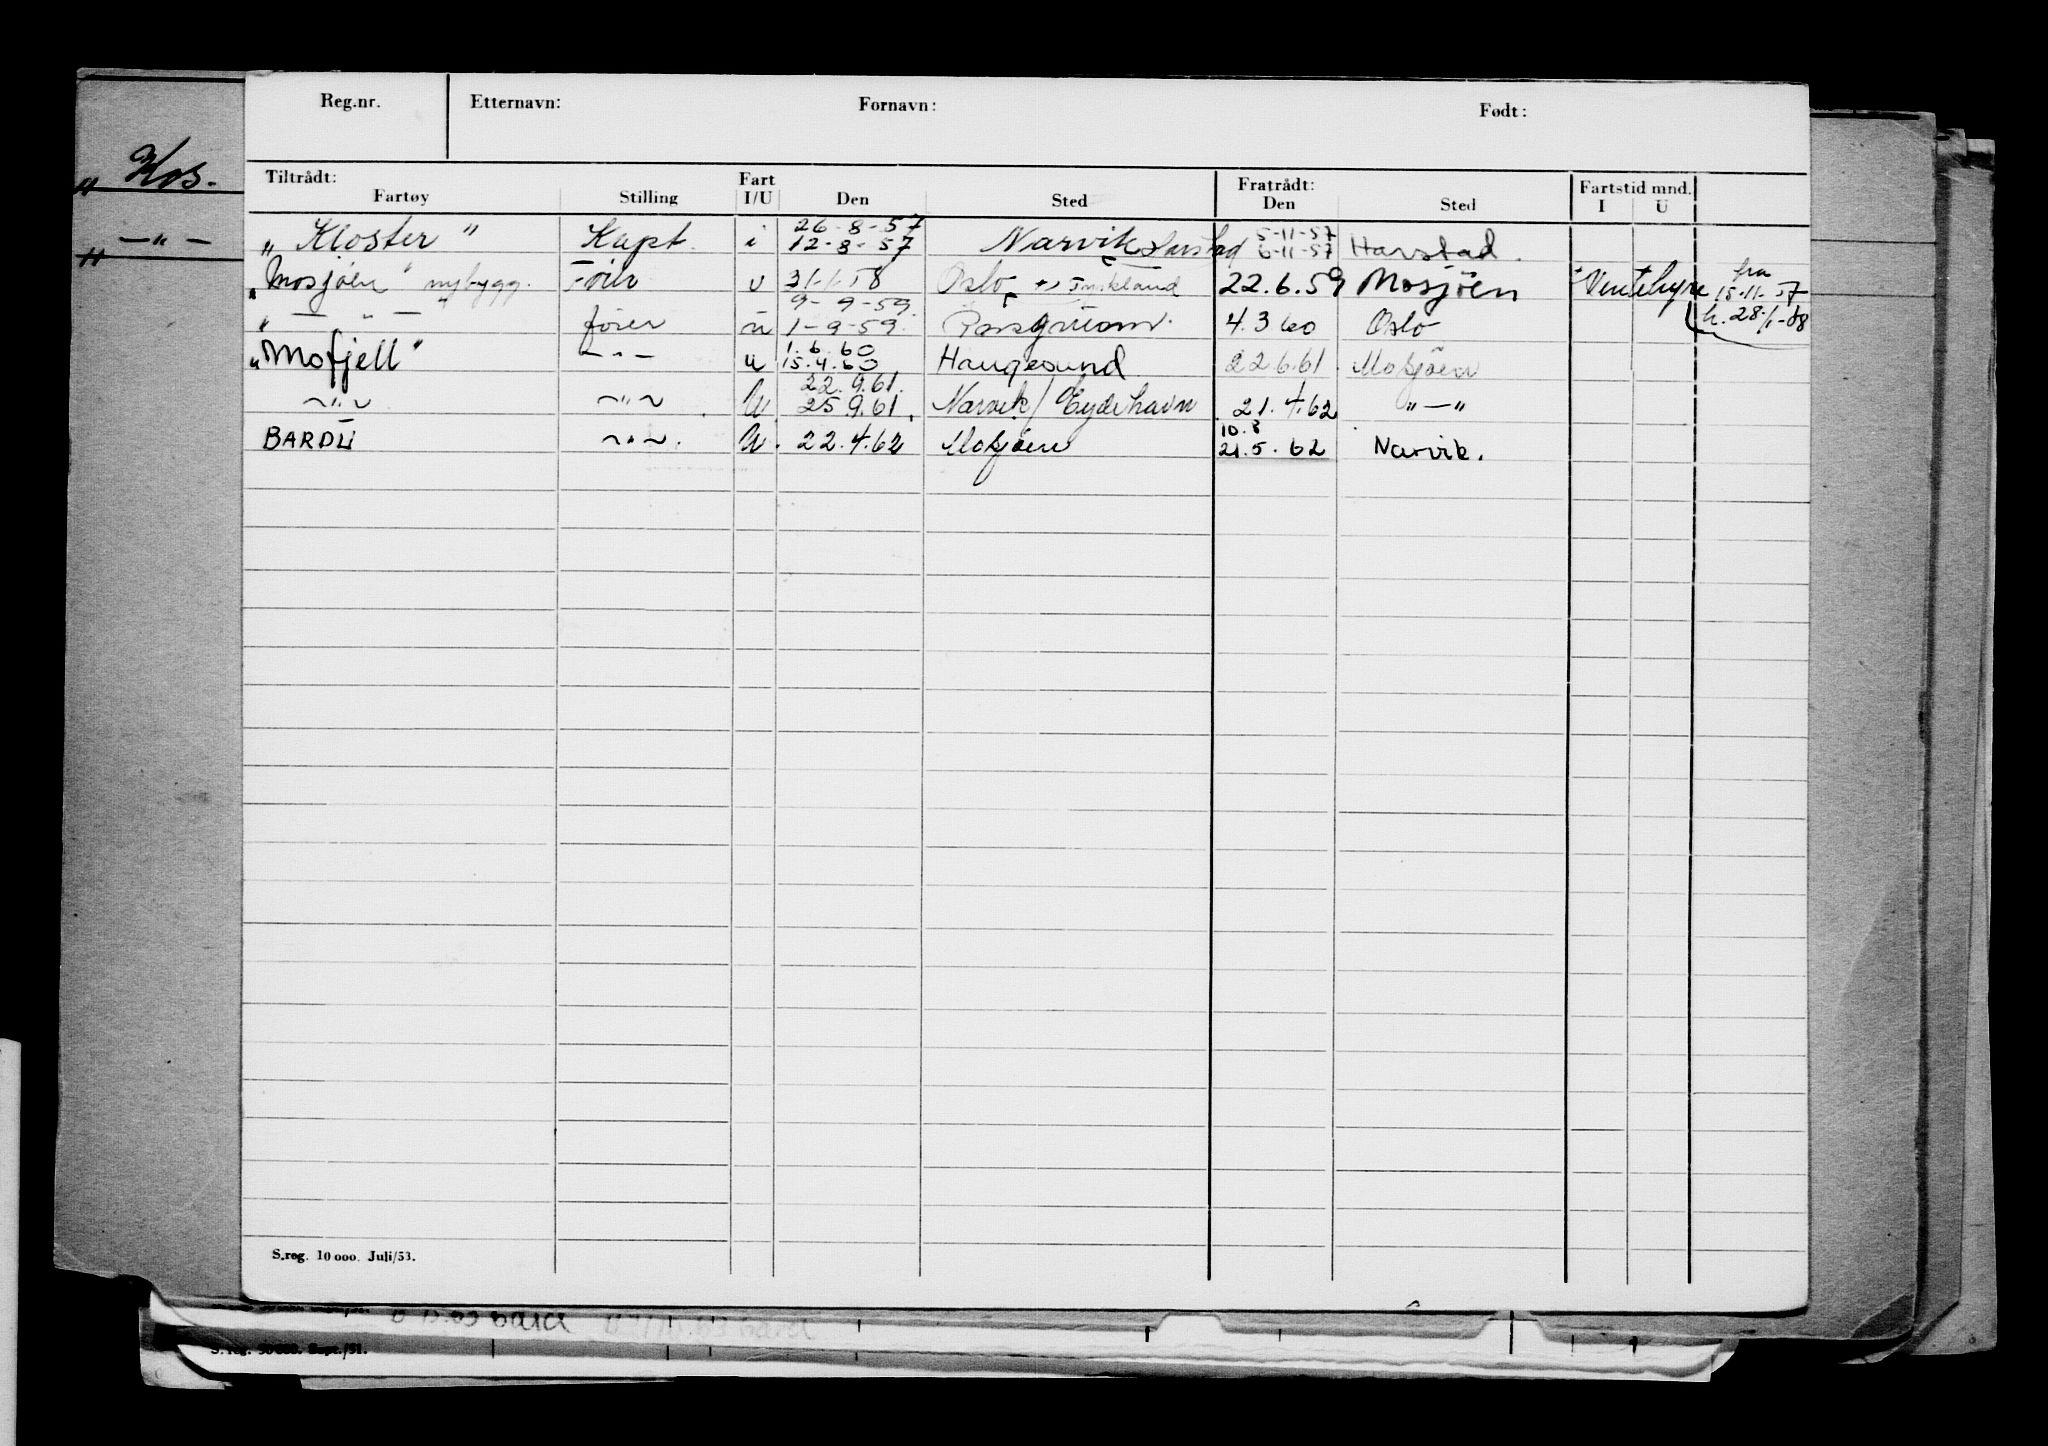 Reg.nr. Etternavn: Fornavn: Født:
„ Kos.
Tiltrådt: Fart Fratrådt: Fartstid mnd.
Fartøy Stilling I/U Den Sted Den Sted I U
26-8-57 5-11-57
„ Kloster " Kapt. i 12-8-57 Narvik Harstad 6-11-57 Harstad.
„ — " —
„Mosjøen" nybygg. Fører u 31-1-58 Oslo 22.6.59 Mosjöen Ventehyre fra 15.11.57
9-9-59.
„ — " — " fører u 1-9-59. 4.3 60 Oslo h. 28/1-58
1.6.60
„Mofjell" — " — u 15.4.60 Haugesund 22.6.61. Mosjøen
22.9.61.
— " — — " — U 25.9.61. Narvik/Eydehavn 21.4.62 " — "
10.8
BARDU — " —. U. 22.4.62 Mosjøen 21.5.62 Narvik.
S.reg. 10 000. Juli/53.
S. reg. 50 000. Sept./51.